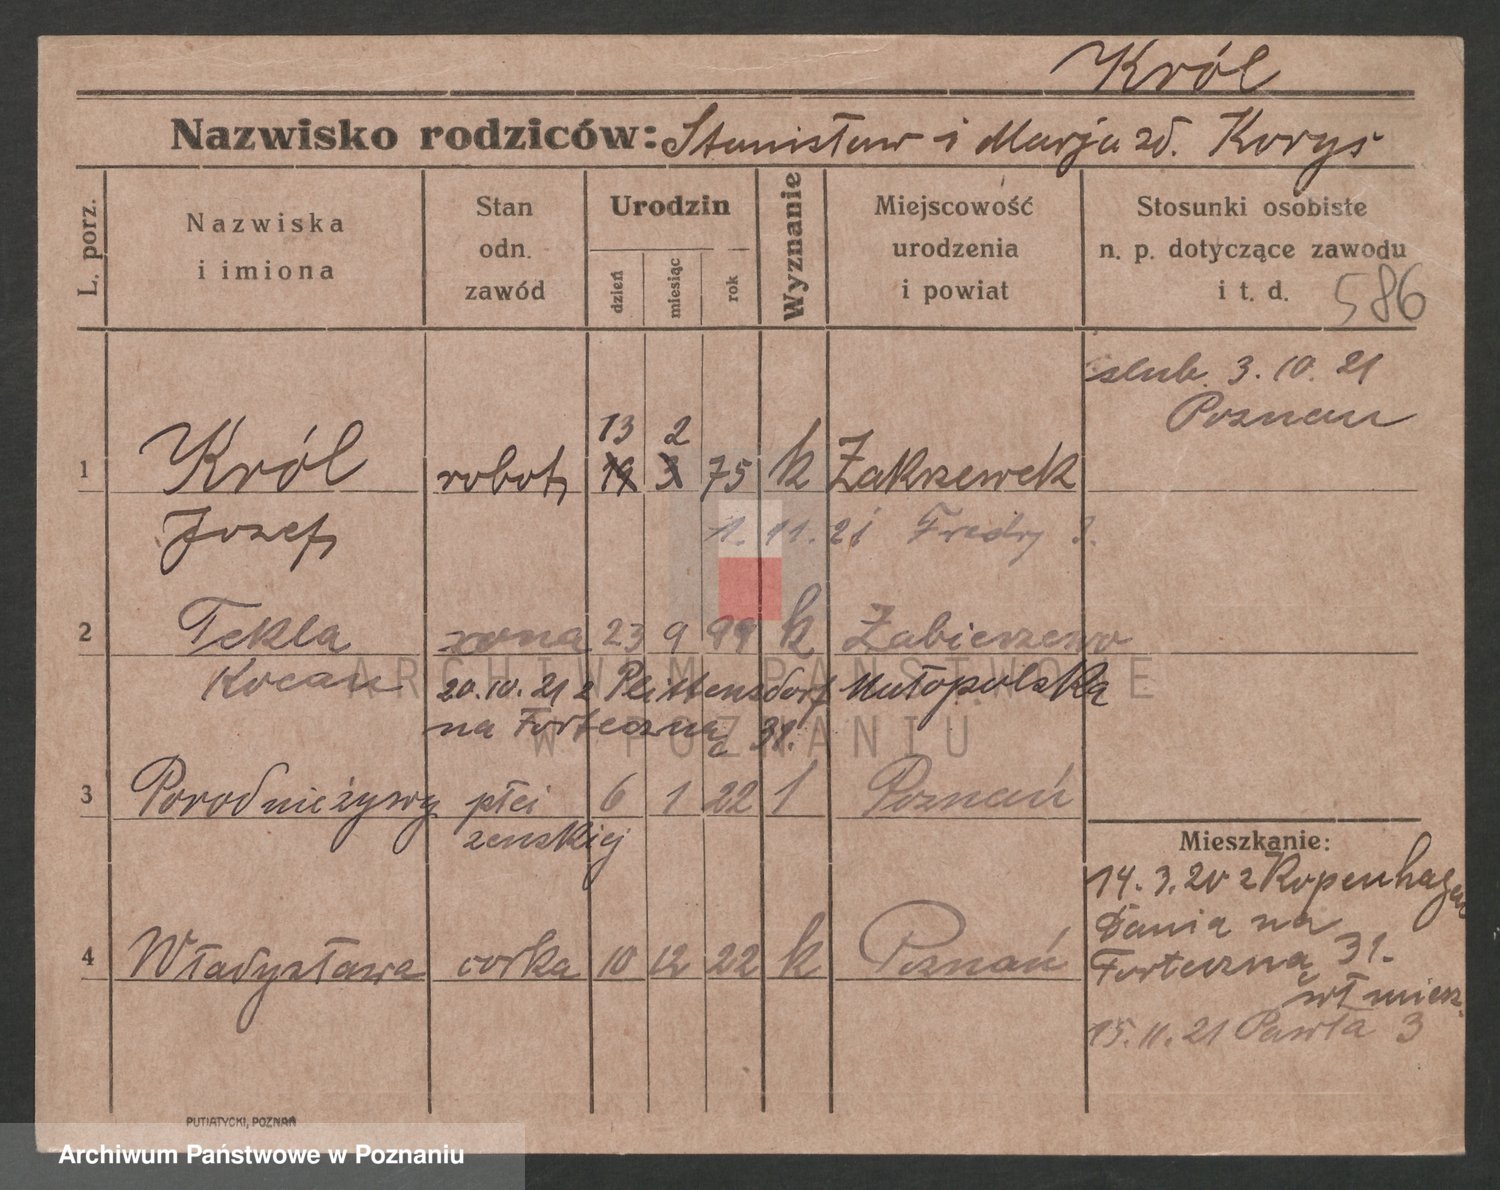 Król
Nazwisko rodziców: Stanisław i Marja zd. Korys
L. porz.
Nazwiska
i imiona
Stan
odn.
zawód
Urodzin
dzień
miesiąc
rok
Wyznanie
Miejscowość
urodzenia
i powiat
Stosunki osobiste
n. p. dotyczące zawodu
i t. d.
586
slub. 3. 10. 21
Poznan
13 2
1 Król robotn 19 3 75 k Zakrzewek
Jozef
1. 11. 21 Fredry 3.
2 Tekla zona 23 9 99 k Zabierzewo
Kocan 20.10.21 z Plittensdorf Małopolska
na Forteczną 31.
3 Porod nieżywy płci 6 1 22 1 Poznań
zenskiej
4 Władysława corka 10 12 22 k Poznań
Mieszkanie:
14.3.20 z Kopenhagen
Dania na
Forteczną 31.
wł miesz.
15.11.21 Pawła 3
PUTIATYCKI, POZNAŃ
ARCHIWUM PAŃSTWOWE
W POZNANIU
Archiwum Państwowe w Poznaniu